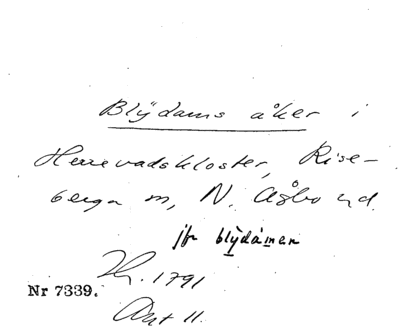 Blÿdams åker i
Herrevadskloster, Rise-
berga m, N. Åsbo hd.
jfr blÿdámen
Lh. 1791
Nr 7339.
Akt 11.